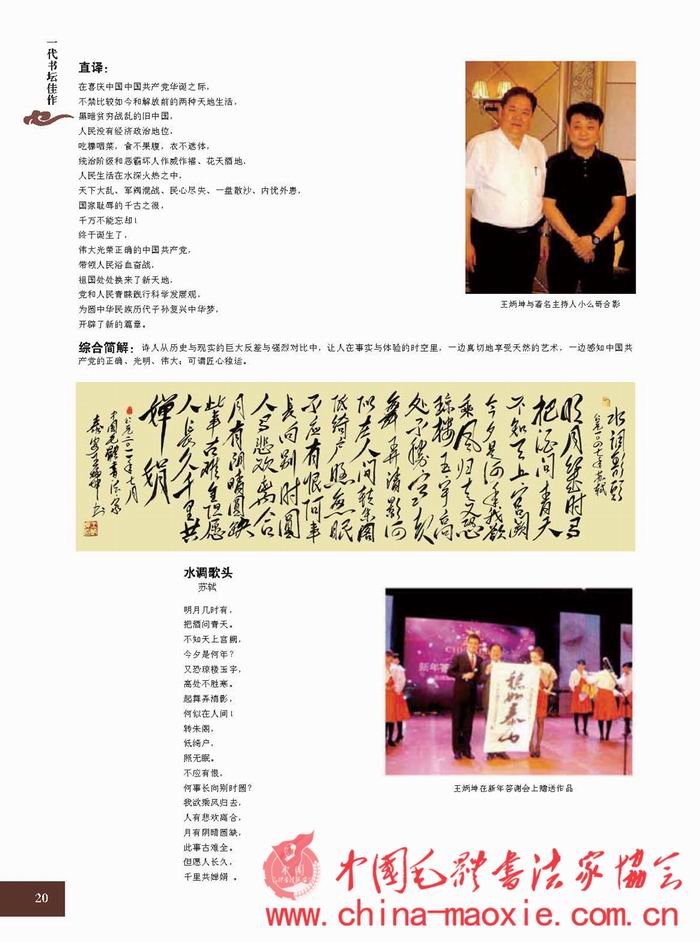 一代书坛佳作
直译：
在喜庆中国中国共产党华诞之际，
不禁比较如今和解放前的两种天地生活，
黑暗贫穷战乱的旧中国，
人民没有经济政治地位，
吃糠咽菜，食不果腹，衣不遮体，
统治阶级和恶霸坏人作威作福、花天酒地，
人民生活在水深火热之中，
天下大乱、军阀混战、民心尽失、一盘散沙、内忧外患，
国家耻辱的千古之恨，
千万不能忘却！
终于诞生了，
伟大光荣正确的中国共产党，
带领人民浴血奋战，
祖国处处换来了新天地，
党和人民青睐践行科学发展观，
为圆中华民族历代子孙复兴中华梦，
开辟了新的篇章。
王炳坤与著名主持人小么哥合影
综合简解：诗人从历史与现实的巨大反差与强烈对比中，让人在事实与体验的时空里，一边真切地享受天然的艺术，一边感知中国共
产党的正确、光明、伟大；可谓匠心独运。
水调歌头
明月几时有
把酒问青天
不知天上宫阙
今夕是何年我欲
乘风归去又恐
琼楼玉宇高
处不胜寒起
舞弄清影何
似在人间转朱阁
低绮户照无眠
不应有恨何事
长向别时圆
人有悲欢离合
月有阴晴圆缺
此事古难全但愿
人长久千里共
婵娟
水调歌头
苏轼
明月几时有，
把酒问青天。
不知天上宫阙，
今夕是何年？
又恐琼楼玉宇，
高处不胜寒。
起舞弄清影，
何似在人间！
转朱阁，
低绮户，
照无眠。
不应有恨，
何事长向别时圆？
我欲乘风归去，
人有悲欢离合，
月有阴晴圆缺，
此事古难全。
但愿人长久，
千里共婵娟 。
稳如泰山
王炳坤在新年答谢会上赠送作品
20
中國毛體書法家協会
www.china-maoxie.com.cn